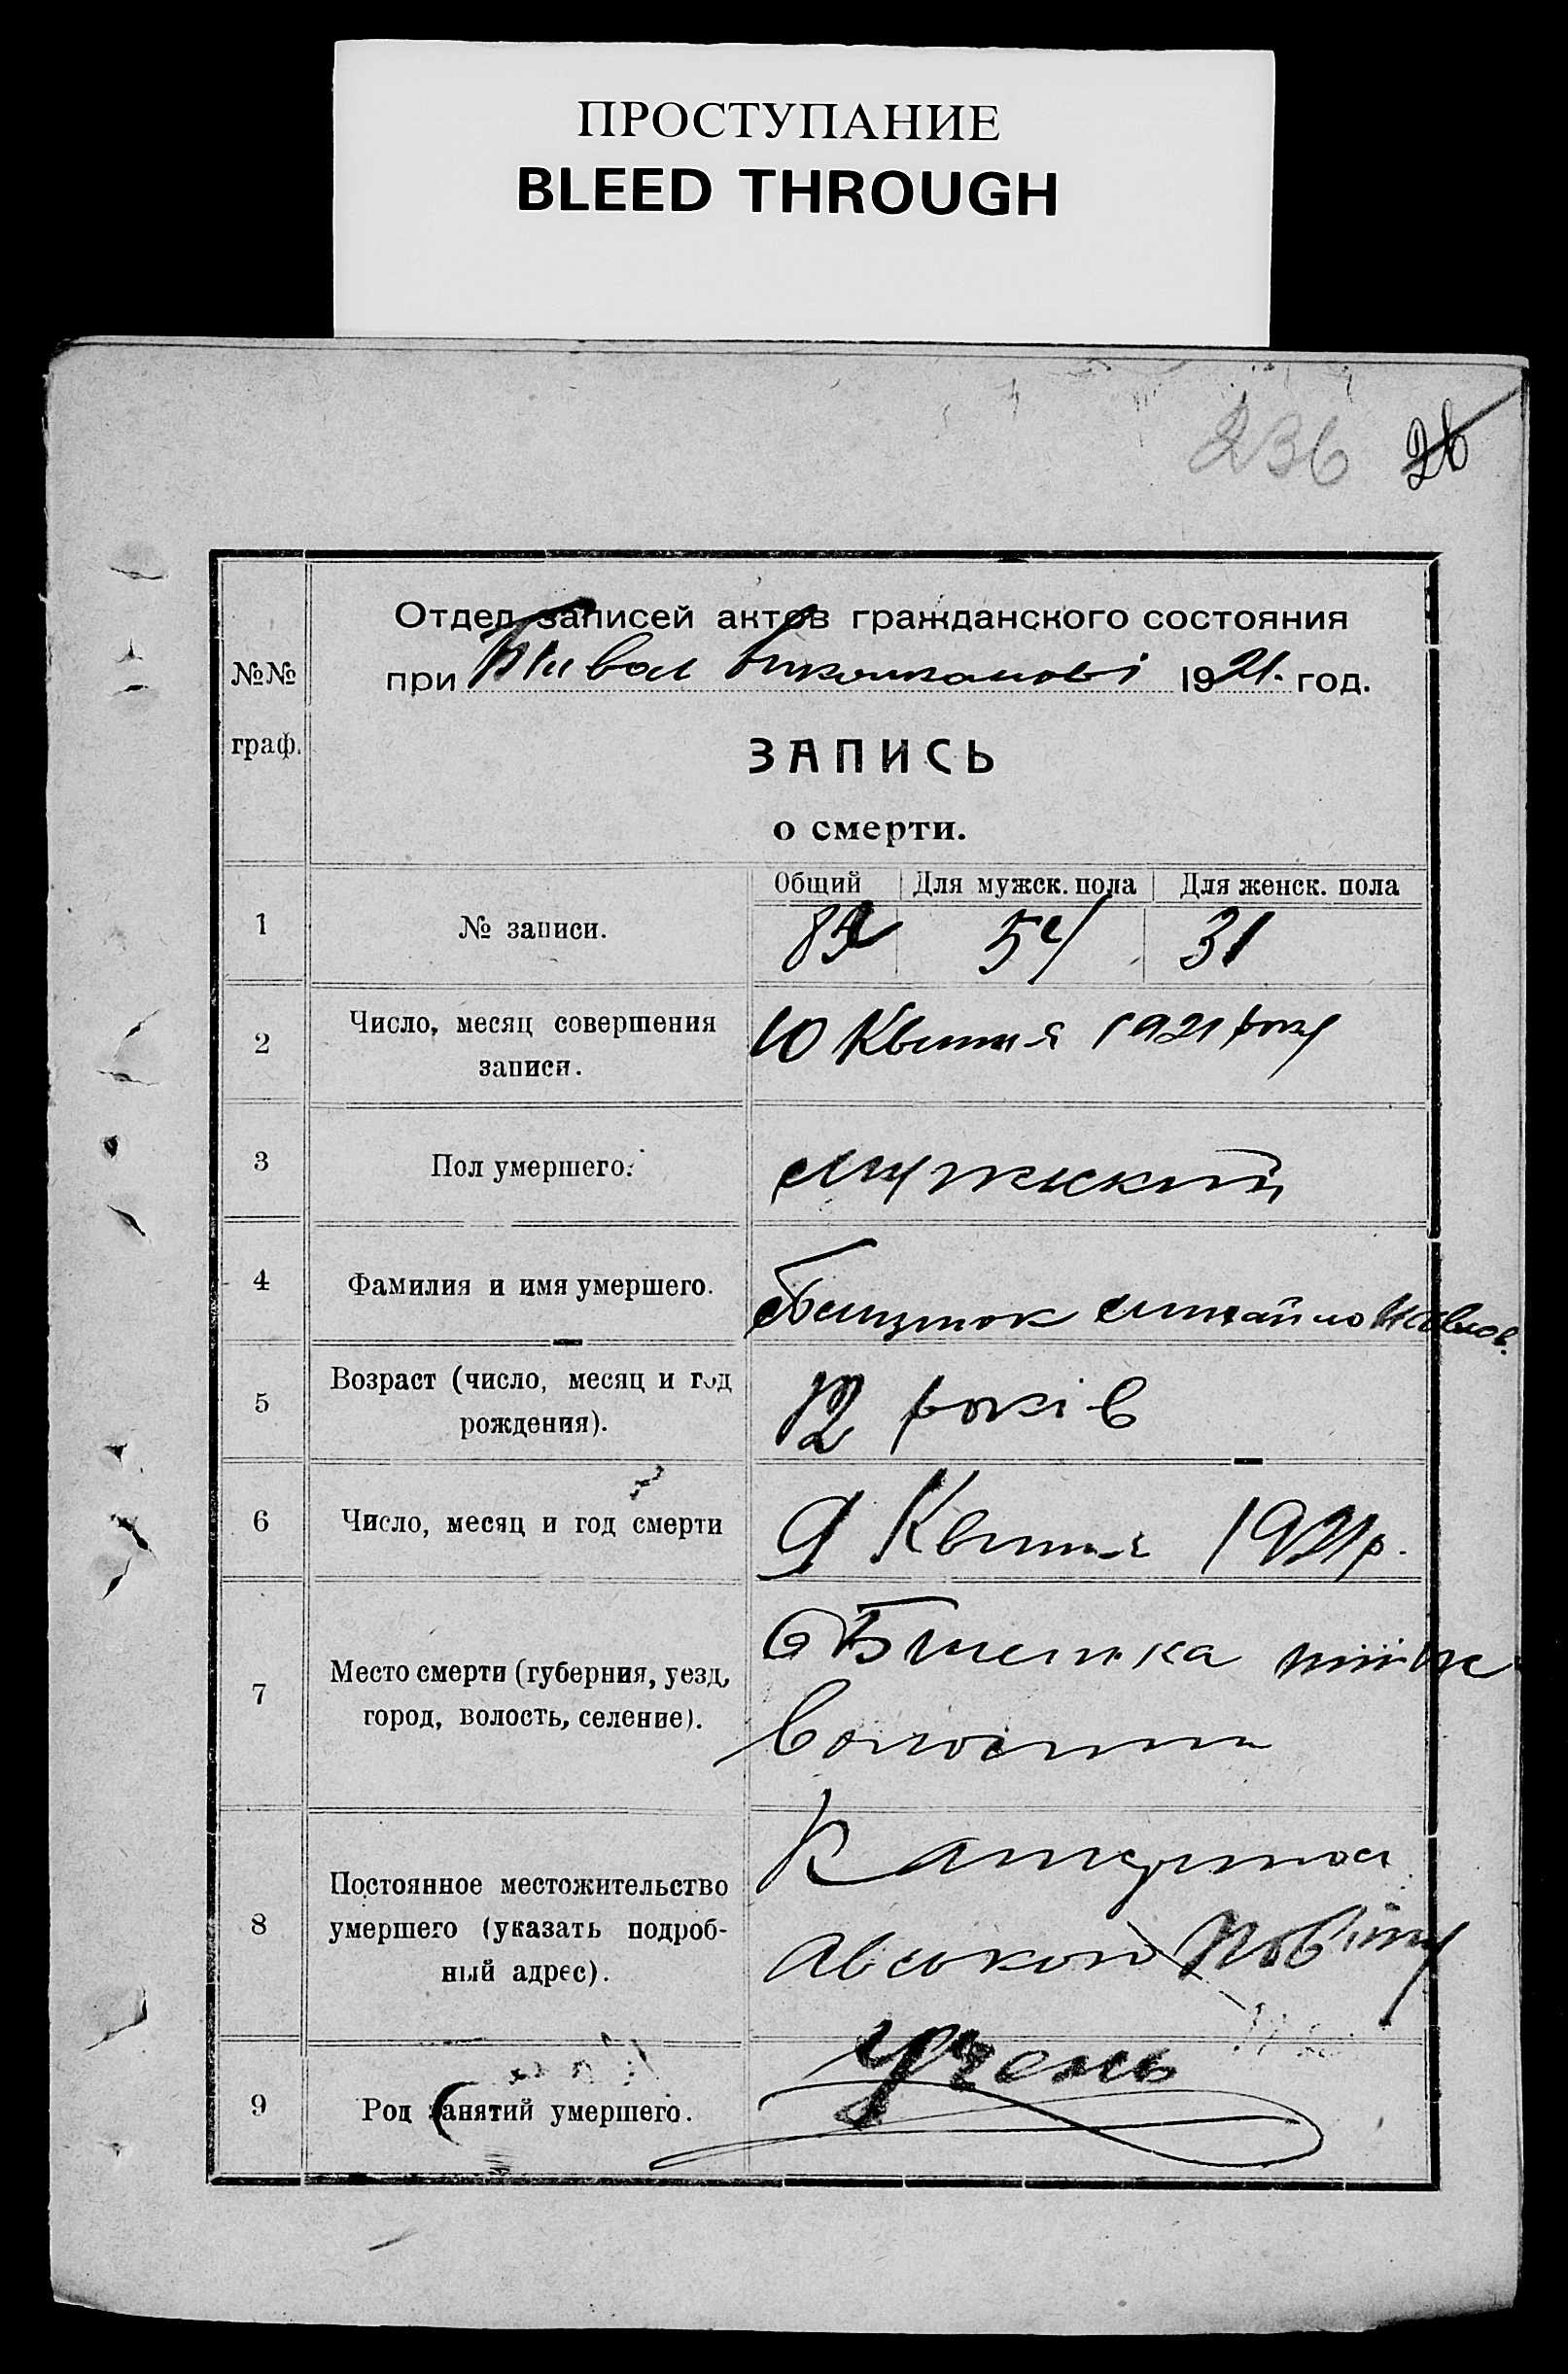 ПРОСТУПАНИЕ
BLEED THROUGH
236 26
Отдел записей актов гражданского состояния
при Біивол Виконкомові 1921. год.
№№
граф.
ЗАПИСЬ
о смерти.
Общий Для мужск. пола Для женск. пола
1 № записи. 54 31
2 Число, месяц совершения
записи.
10 Квитня 1921 року
3 Пол умершего. мужский
4 Фамилия и имя умершего. Михайло Павлов.
5 Возраст (число, месяц и год
рождения).
12 років
6 Число, месяц и год смерти 9 Квитня 1921 р.
7 Место смерти (губерния, уезд,
город, волость, селение).
волости
8 Постоянное местожительство
умершего (указать подроб-
ный адрес).
Катерино
славського Повіту
9 Род занятий умершего. Учень